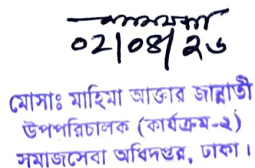 ০২/০৪/২৬
মোসাঃ মাহিমা আক্তার জান্নাতী
উপপরিচালক (কার্যক্রম-২)
সমাজসেবা অধিদপ্তর, ঢাকা।